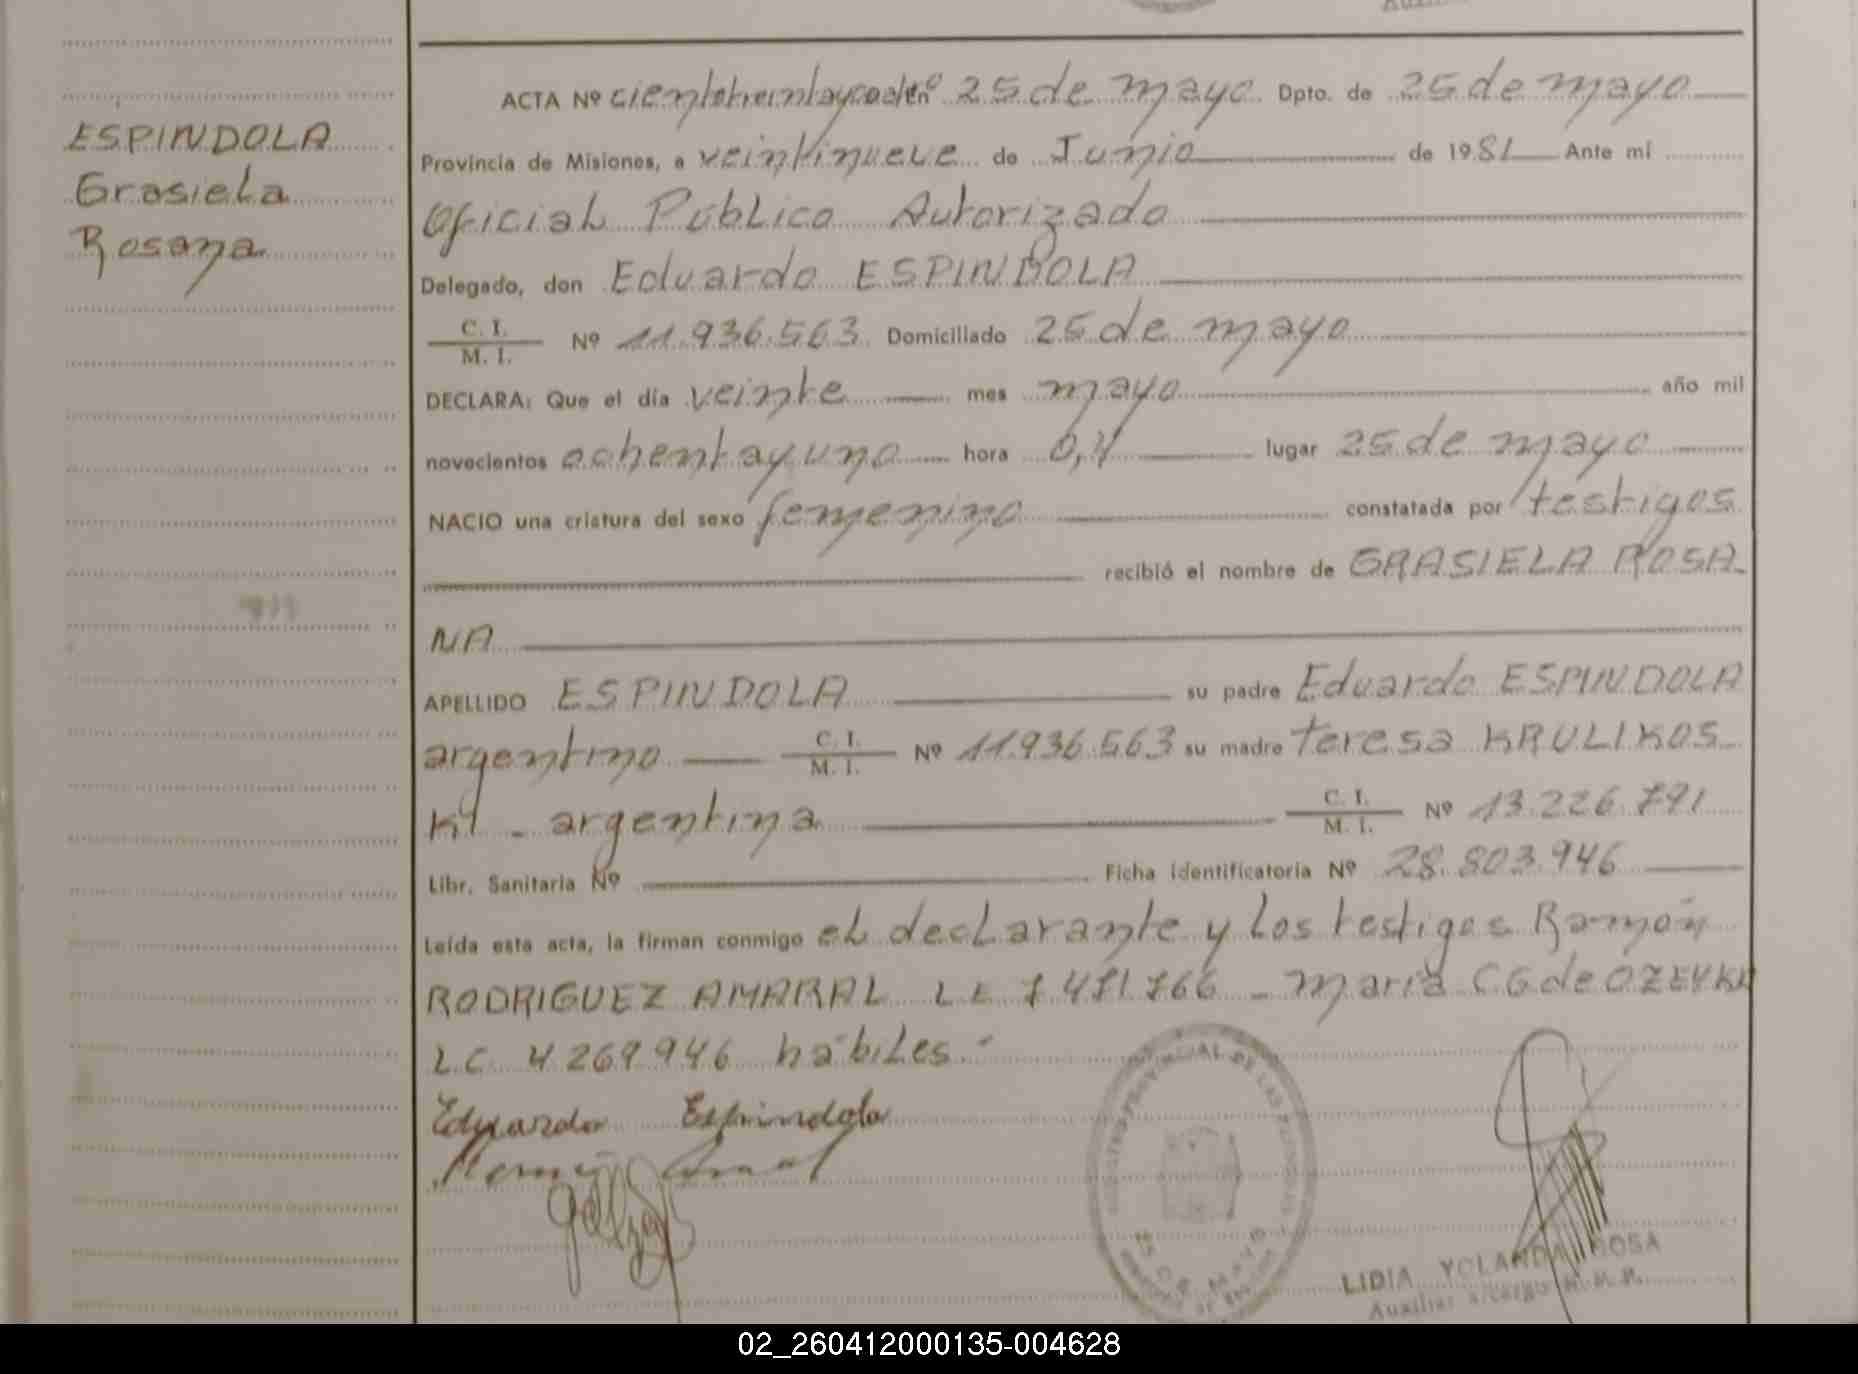 ESPINDOLA
Grasiela
Rosana
ACTA Nº en 25 de mayo Dpto. de 25 de mayo
Provincia de Misiones, a veintinueve de Junio de 1981 Ante mí
Oficial Público Autorizado
Delegado, don Eduardo ESPINDOLA
C. I.
M. I. Nº 11.936.563 Domiciliado 25 de mayo
DECLARA: Que el día veinte mes mayo año mil
novecientos ochentayuno hora 0,4 lugar 25 de mayo
NACIO una criatura del sexo femenino constatada por testigos
recibió el nombre de GRASIELA ROSA
NA
APELLIDO ESPINDOLA su padre Eduardo ESPINDOLA
argentino C. I. M. I. Nº 11.936.563 su madre teresa KRULIKOS
KI - argentina C. I. M. I. Nº 13.226.791
Libr. Sanitaria Nº Ficha identificatoria Nº 28.803.946
Leída esta acta, la firman conmigo el declarante y los testigos Ramón
RODRIGUEZ AMARAL LE 7.471.766 - maría C G de
LC 4.269.946 hábiles.-
Eduardo Espindola
REGISTRO PROVINCIAL DE LAS PERSONAS
25 DE MAYO
LIDIA YOLANDA ROSA
Auxiliar a/cargo
02_260412000135-004628